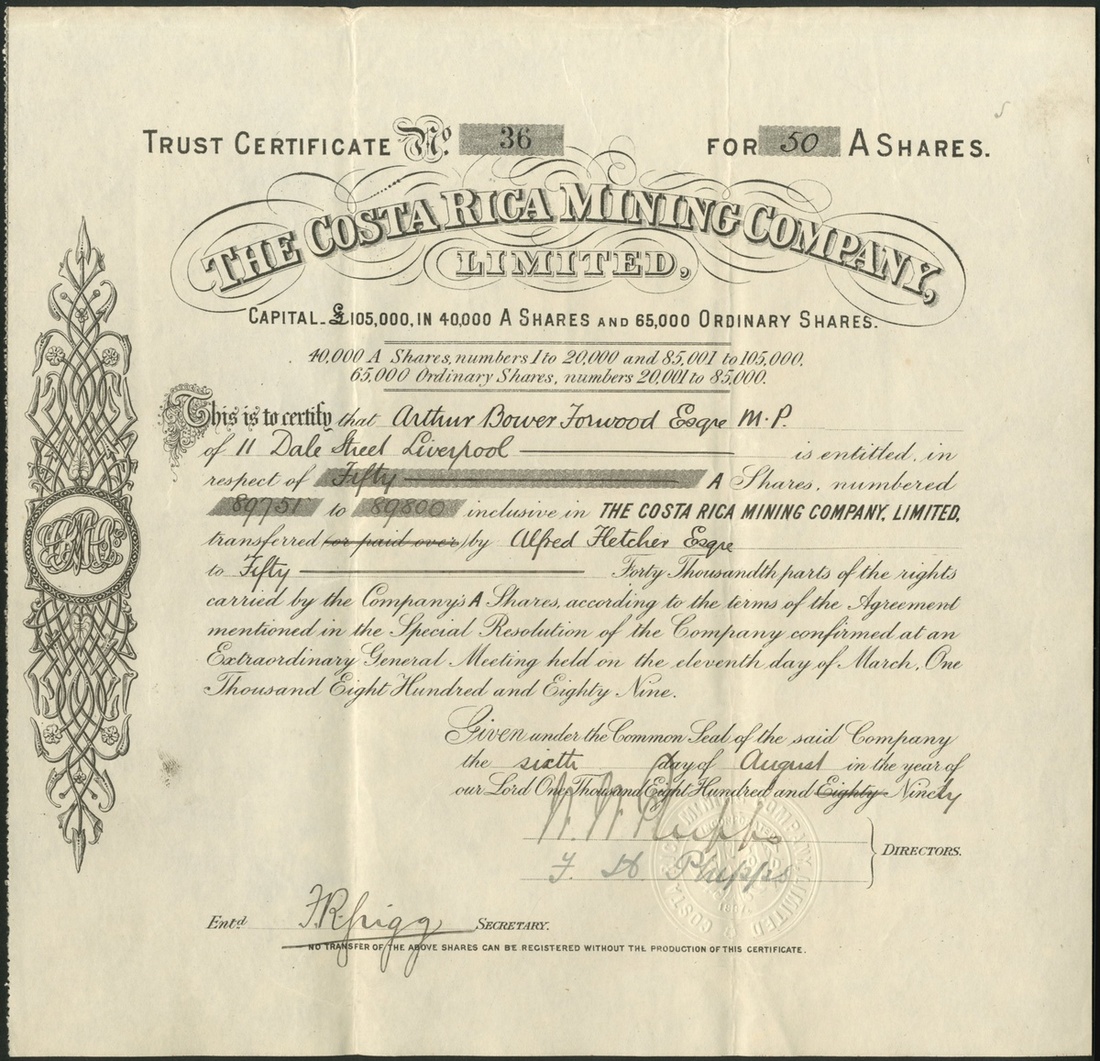 TRUST CERTIFICATE No. 36 FOR 50 A SHARES.
THE COSTA RICA MINING COMPANY,
LIMITED,
CAPITAL £105,000, IN 40,000 A SHARES AND 65,000 ORDINARY SHARES.
40,000 A Shares, numbers 1 to 20,000 and 85,001 to 105,000.
65,000 Ordinary Shares, numbers 20,001 to 85,000.
This is to certify that Arthur Bower Forwood Esqre M.P.
of 11 Dale Street Liverpool is entitled, in
respect of Fifty A Shares, numbered
89751 to 89800 inclusive in THE COSTA RICA MINING COMPANY, LIMITED,
transferred (or paid over) by Alfred Fletcher Esqre
to Fifty Forty Thousandth parts of the rights
carried by the Company's A Shares, according to the terms of the Agreement
mentioned in the Special Resolution of the Company confirmed at an
Extraordinary General Meeting held on the eleventh day of March, One
Thousand Eight Hundred and Eighty Nine.
Given under the Common Seal of the said Company
the sixth day of August in the year of
our Lord One Thousand Eight Hundred and Eighty Ninety
Phipps
DIRECTORS.
F. H. Phipps
Entd. SECRETARY.
NO TRANSFER OF THE ABOVE SHARES CAN BE REGISTERED WITHOUT THE PRODUCTION OF THIS CERTIFICATE.